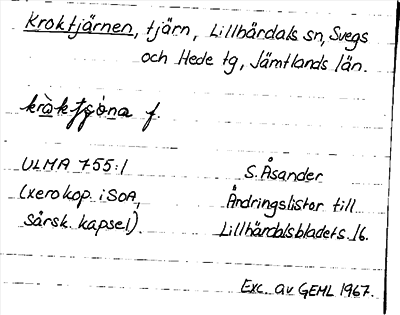 Kroktjärnen, tjärn, Lillhärdals sn, Svegs
och Hede tg, Jämtlands län.
kràktjṓna f.
ULMA 755:1 S. Åsander
(xerokop. i SOA, Ändringslistor till
särsk. kapsel). Lillhärdalsbladets. 16.
Exc. av GEML 1967.